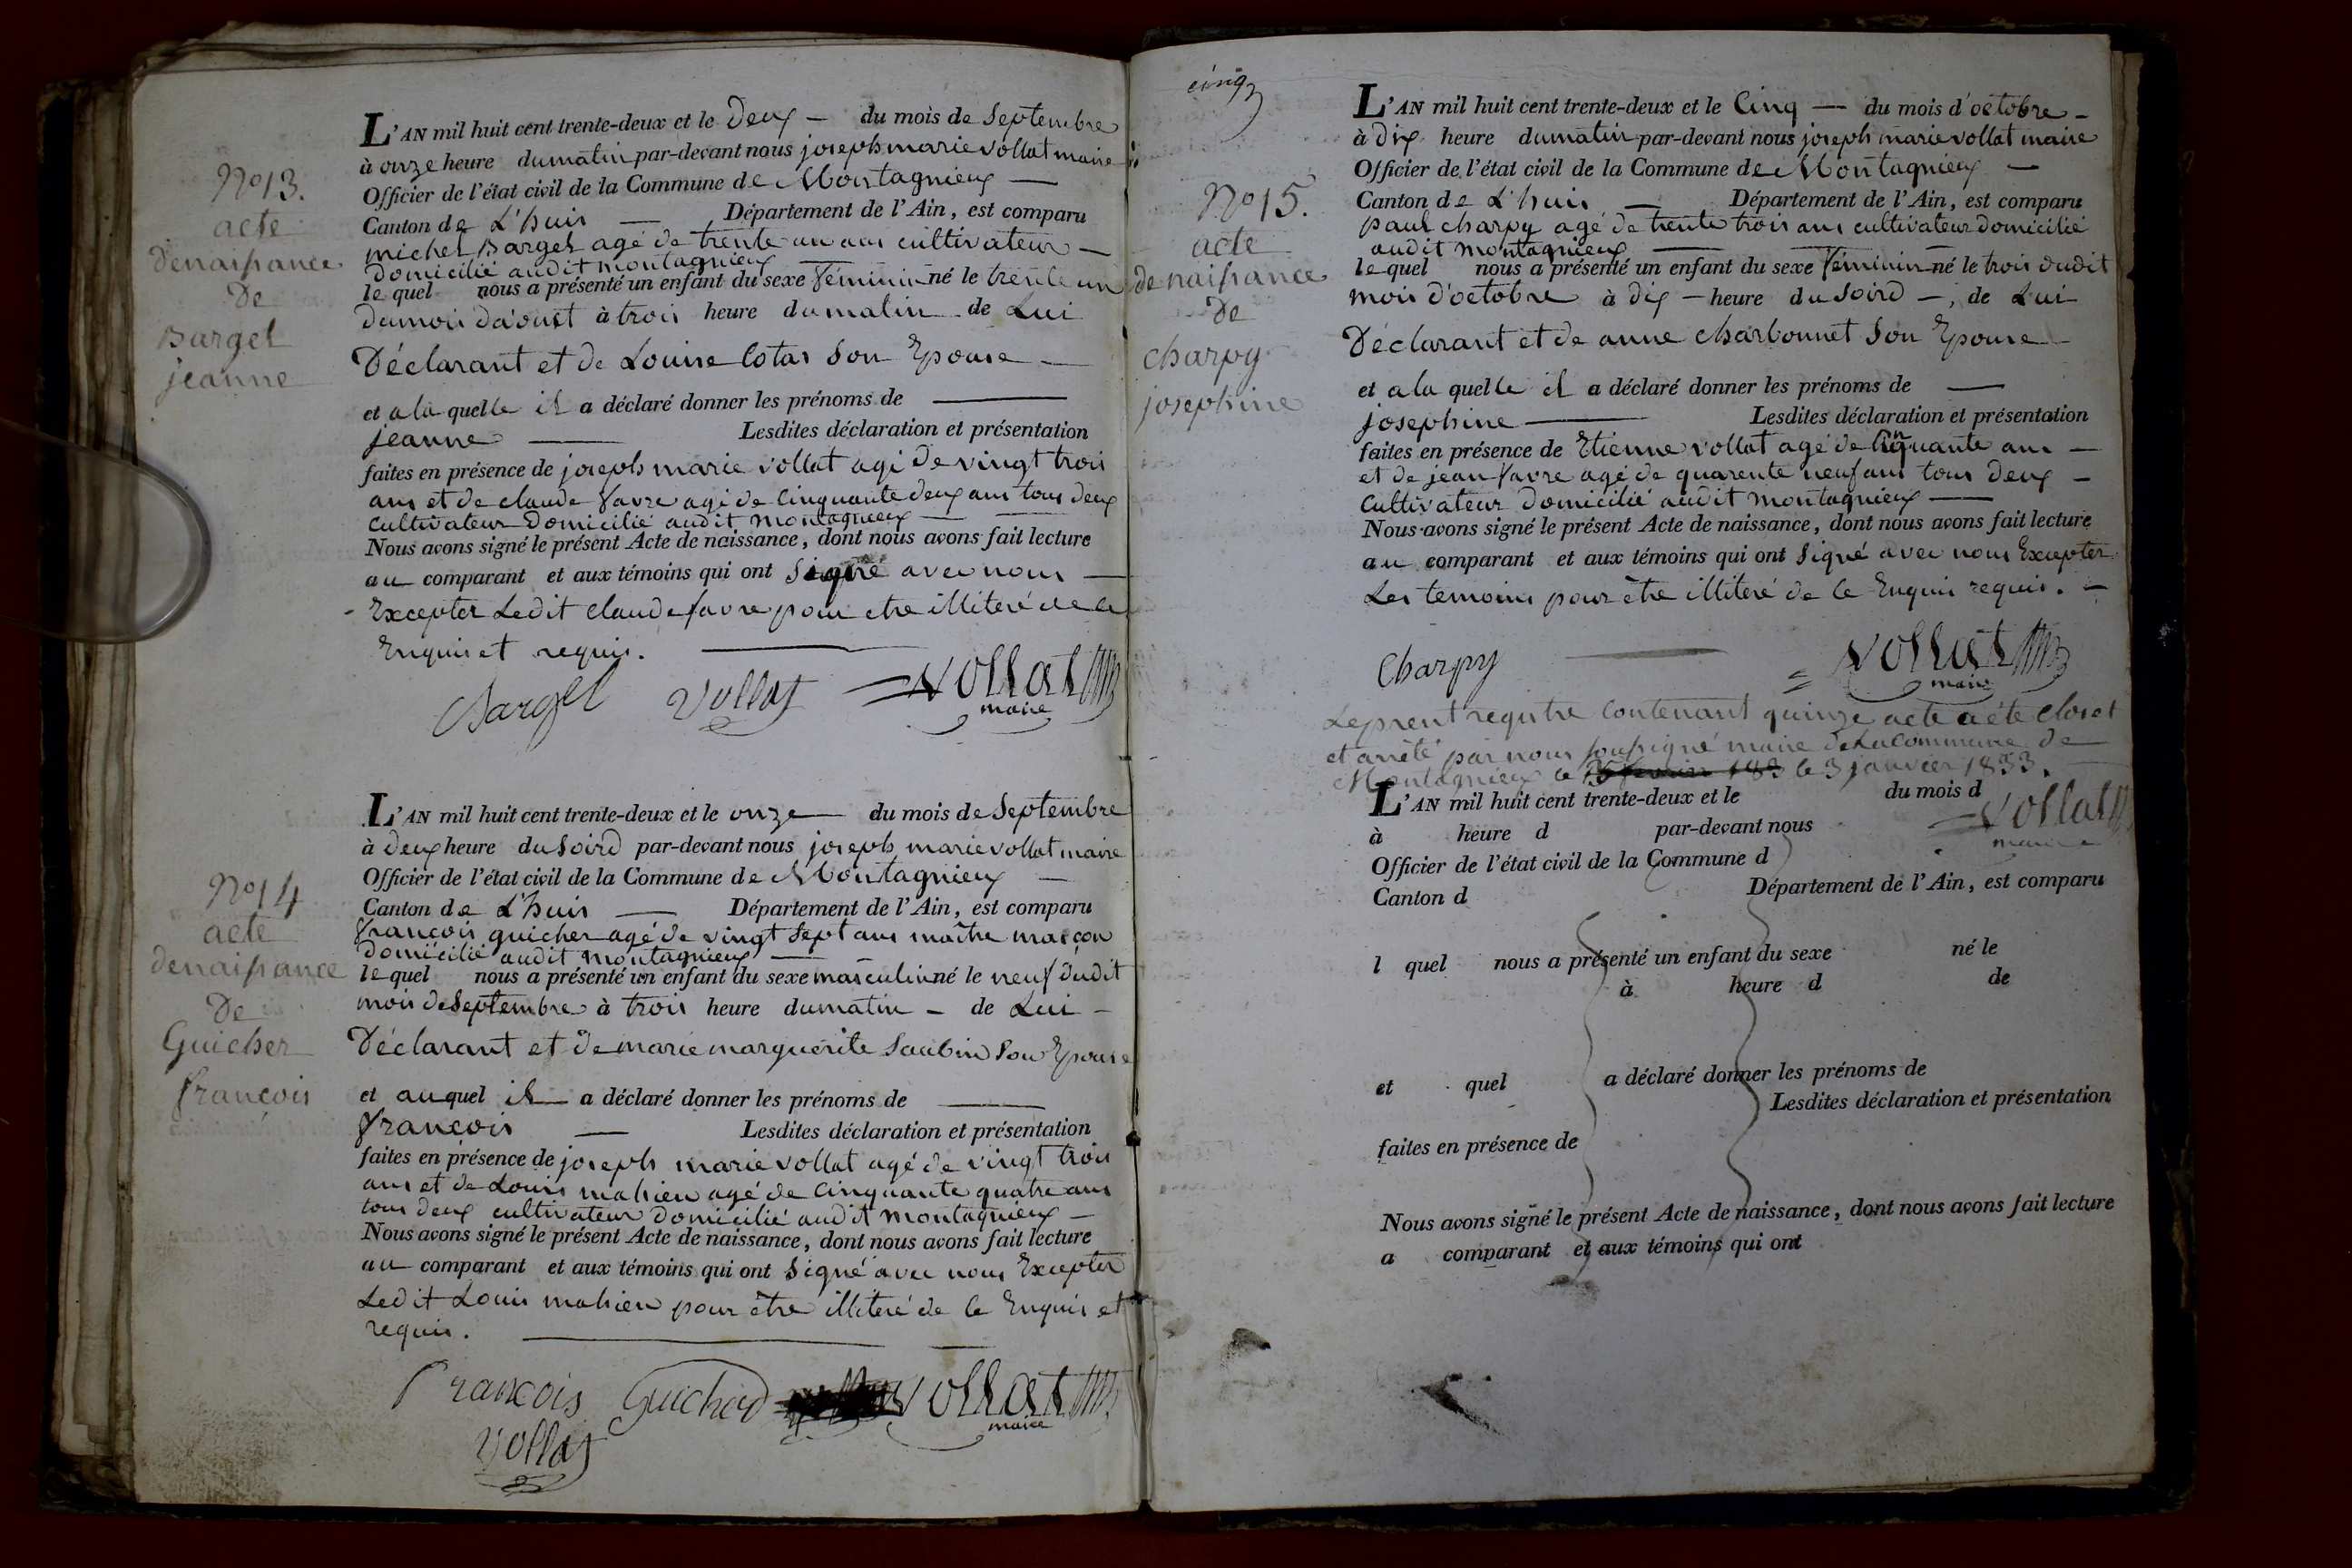 N° 13.
acte
denaissance
De
Bargel
jeanne
L'AN mil huit cent trente-deux et le Deux — du mois de Septembre
à onze heure dumatin par-devant nous joseph marie vollat maire
Officier de l'état civil de la Commune de Montagnieux —
Canton de L'huis — Département de l'Ain, est comparu
michel Bargel agé de trente un ans cultivateur —
Domicilié audit montagnieux —
le quel nous a présenté un enfant du sexe féminin né le trente un
dumois daoust à trois heure dumatin de Lui
Déclarant et de Louise Cotas Son Epouse —
et ala quelle il a déclaré donner les prénoms de —
jeanne — Lesdites déclaration et présentation
faites en présence de joseph marie vollat agé de vingt trois
ans et de claude favre agé de Cinquante deux ans tous deux
Cultivateur Domicilié audit montagnieux —
Nous avons signé le présent Acte de naissance, dont nous avons fait lecture
au comparant et aux témoins qui ont Signé avec nous —
Excepter Ledit Claude favre pour etre illiteré de ce
Enquis et requis. —
Bargel Vollat Vollat
maire
N° 14
acte
denaissance
De
Guicher
françois
L'AN mil huit cent trente-deux et le onze — du mois de Septembre
à Deux heure du Soird par-devant nous joseph marie vollat maire
Officier de l'état civil de la Commune de Montagnieux —
Canton de L'huis — Département de l'Ain, est comparu
françois guicher agé de vingt Sept ans maître maçon
Domicilié audit montagnieux —
le quel nous a présenté un enfant du sexe masculin né le neuf dudit
mois de Septembre à trois heure dumatin — de Lui —
Déclarant et de marie marguerite Saubin Son Epouse
et auquel il — a déclaré donner les prénoms de —
françois — Lesdites déclaration et présentation
faites en présence de joseph marie vollat agé de vingt trois
ans et de Louis mahieu agé de Cinquante quatre ans
tous deux cultivateur Domicilié audit montagnieux —
Nous avons signé le présent Acte de naissance, dont nous avons fait lecture
au comparant et aux témoins qui ont Signé avec nous Excepter
Ledit Louis mahieu pour être illiteré de ce Enquis et
requis. —
François Guicherd Vollat
maire
Vollat
cinq
N° 15.
acte
denaissance
De
charpy
josephine
L'AN mil huit cent trente-deux et le Cinq — du mois d'octobre —
à Dix heure dumatin par-devant nous joseph marie vollat maire
Officier de l'état civil de la Commune de Montagnieux —
Canton de L'huis — Département de l'Ain, est comparu
paul charpy agé de trente trois ans cultivateur domicilié
audit montagnieux —
le quel nous a présenté un enfant du sexe féminin né le trois dudit
mois d'octobre à dix — heure du Soird —, de Lui
Déclarant et de anne charbonnet Son Epouse —
et ala quelle il a déclaré donner les prénoms de —
josephine — Lesdites déclaration et présentation
faites en présence de Etienne vollat agé de Cinquante ans —
et de jean favre agé de quarente neuf ans tous deux —
Cultivateur Domicilié audit montagnieux —
Nous avons signé le présent Acte de naissance, dont nous avons fait lecture
au comparant et aux témoins qui ont Signé avec nous Excepter
Les temoins pour être illiteré de ce Enquis requis. —
Charpy Vollat
maire
Leprent registre Contenant quinze acte a éte Clos et
et arrêté par nous soussigné maire de La Commune de
Montagnieux le le 3 janvier 1833.
Vollat
maire
L'AN mil huit cent trente-deux et le du mois d
à heure d par-devant nous
Officier de l'état civil de la Commune d
Canton d Département de l'Ain, est comparu
l quel nous a présenté un enfant du sexe né le
à heure d de
et quel a déclaré donner les prénoms de
Lesdites déclaration et présentation
faites en présence de
Nous avons signé le présent Acte de naissance, dont nous avons fait lecture
a comparant et aux témoins qui ont